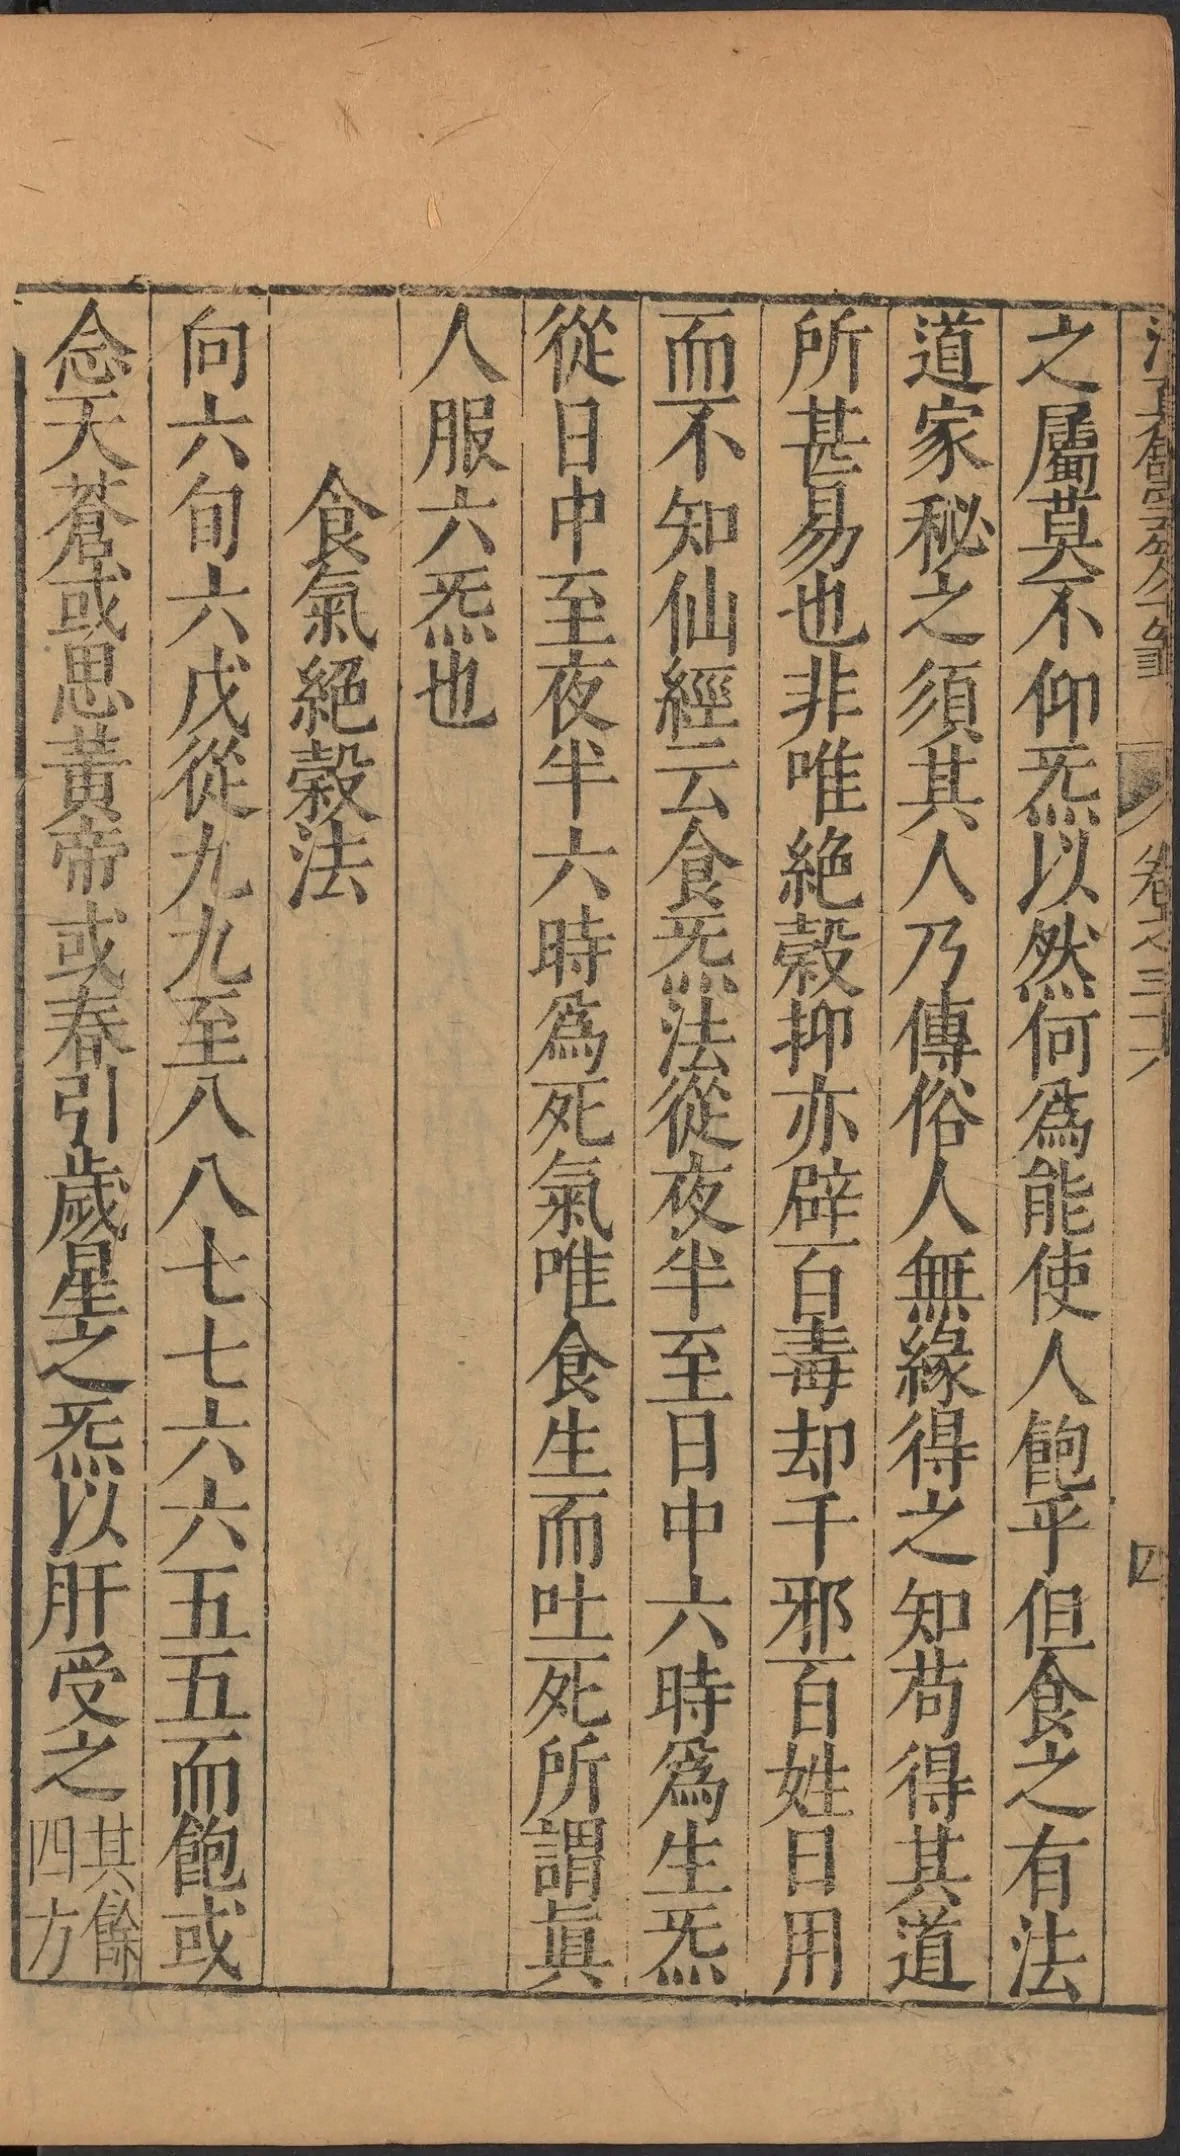 卷之三十六
四
之屬莫不仰炁以然何爲能使人飽乎但食之有法
道家秘之須其人乃傳俗人無緣得之知苟得其道
所甚易也非唯絶穀抑亦辟百毒却千邪百姓日用
而不知仙經云食炁法從夜半至日中六時爲生炁
從日中至夜半六時爲死氣唯食生而吐死所謂眞
人服六炁也
食氣絕穀法
向六旬六戊從九九至八八七七六六五五而飽或
念天蒼或思黃帝或春引歲星之炁以肝受之其餘
四方